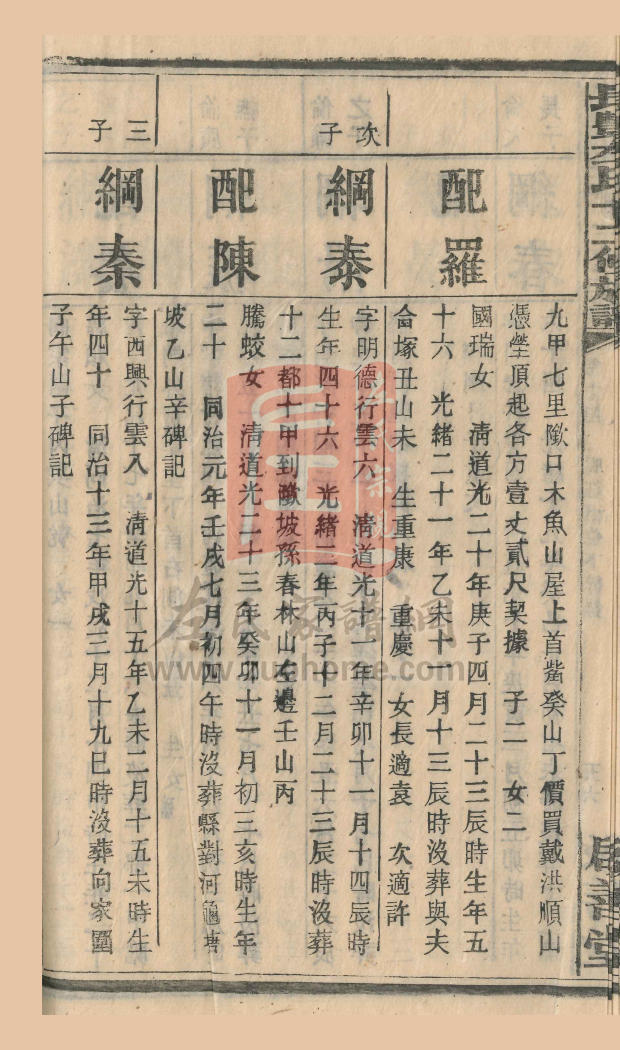 九甲七里歐口木魚山屋上首觜癸山丁價買戴洪順山
憑塋頂起各方壹丈貳尺契據 子二 女二
配羅
國瑞女 清道光二十年庚子四月二十三辰時生年五
十六 光緒二十一年乙未十一月十三辰時没葬與夫
合塚丑山未 生重康 重慶 女長適袁 次適許
次子
綱泰
字明德行雲六 清道光十一年辛卯十一月十四辰時
生年四十六 光緒二年丙子十二月二十三辰時没葬
十二都十甲到歐坡孫春林山左邊壬山丙
配陳
騰蛟女 清道光二十三年癸卯十一月初三亥時生年
二十 同治元年壬戌七月初四午時没葬縣對河龜塘
坡乙山辛碑記
三子
綱秦
字西興行雲入 清道光十五年乙未二月十五未時生
年四十 同治十三年甲戌三月十九巳時没葬向家園
子午山子碑記
十二修族譜
善堂
家譜網